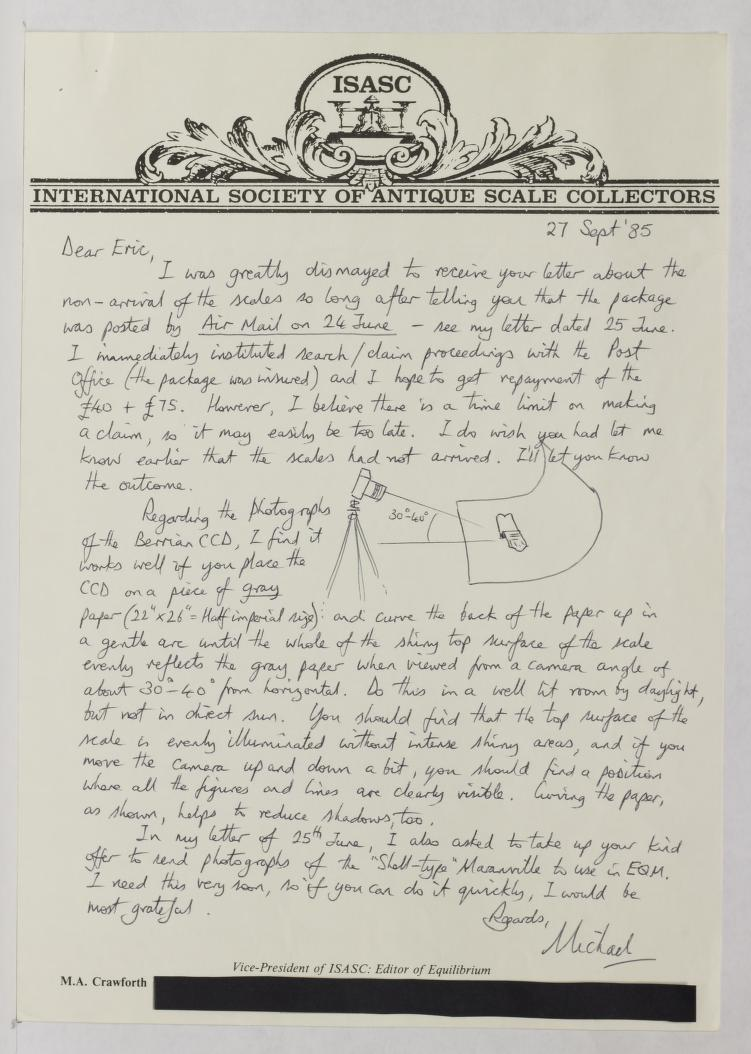 ISASC
INTERNATIONAL SOCIETY OF ANTIQUE SCALE COLLECTORS
27 Sept '85
Dear Eric,
I was greatly dismayed to receive your letter about the
non-arrival of the scales so long after telling you that the package
was posted by Air Mail on 24 June – see my letter dated 25 June.
I immediately instituted search/claim proceedings with the Post
Office (the package was insured) and I hope to get repayment of the
£40 + £75. However, I believe there is a time limit on making
a claim, so it may easily be too late. I do wish you had let me
know earlier that the scales had not arrived. I'll let you know
the outcome.
Regarding the photographs
of the Berrian CCD, I find it
works well if you place the
CCD on a piece of gray
30°-40°
paper (22" x 26" = Half imperial size) and curve the back of the paper up in
a gentle arc until the whole of the shiny top surface of the scale
evenly reflects the gray paper when viewed from a camera angle of
about 30°-40° from horizontal. Do this in a well lit room by daylight,
but not in direct sun. You should find that the top surface of the
scale is evenly illuminated without intense shiny areas, and if you
move the camera up and down a bit, you should find a position
where all the figures and lines are clearly visible. Curving the paper,
as shown, helps to reduce shadows, too.
In my letter of 25th June, I also asked to take up your kind
offer to send photographs of the "Shell-type" Maranville to use in EQM.
I need this very soon, so if you can do it quickly, I would be
most grateful.
Regards,
Michael
Vice-President of ISASC: Editor of Equilibrium
M.A. Crawforth